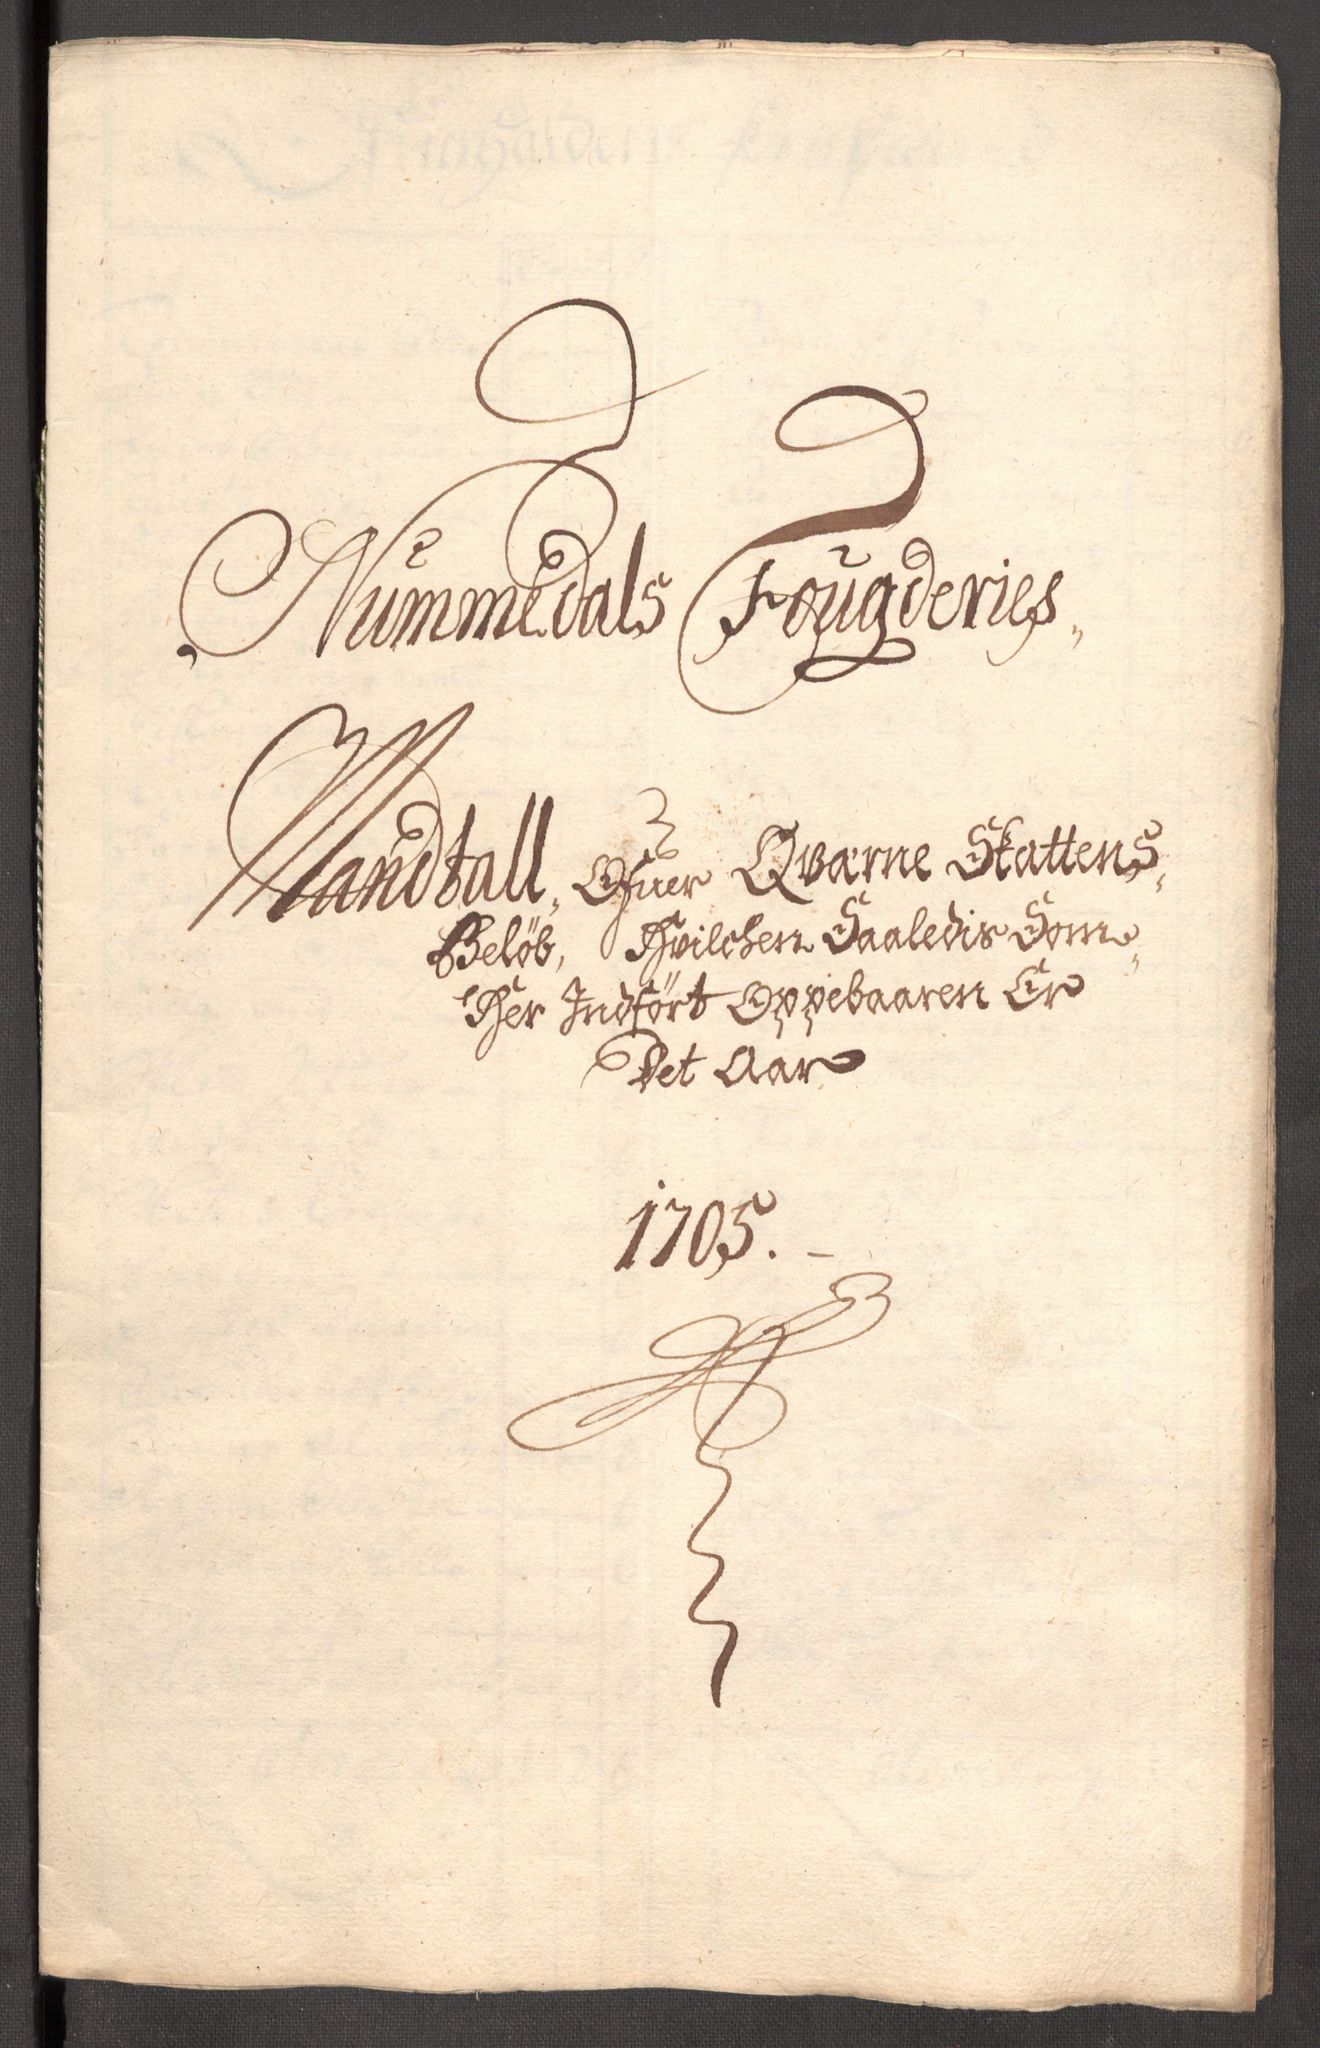 Nummedals Fougderies„
Mandtall, Ofuer Qværne Skattens„
Beløb, Hvilchen Saaledis Som„
Her Indført Oppebaaren Er
Det Aar
1705.